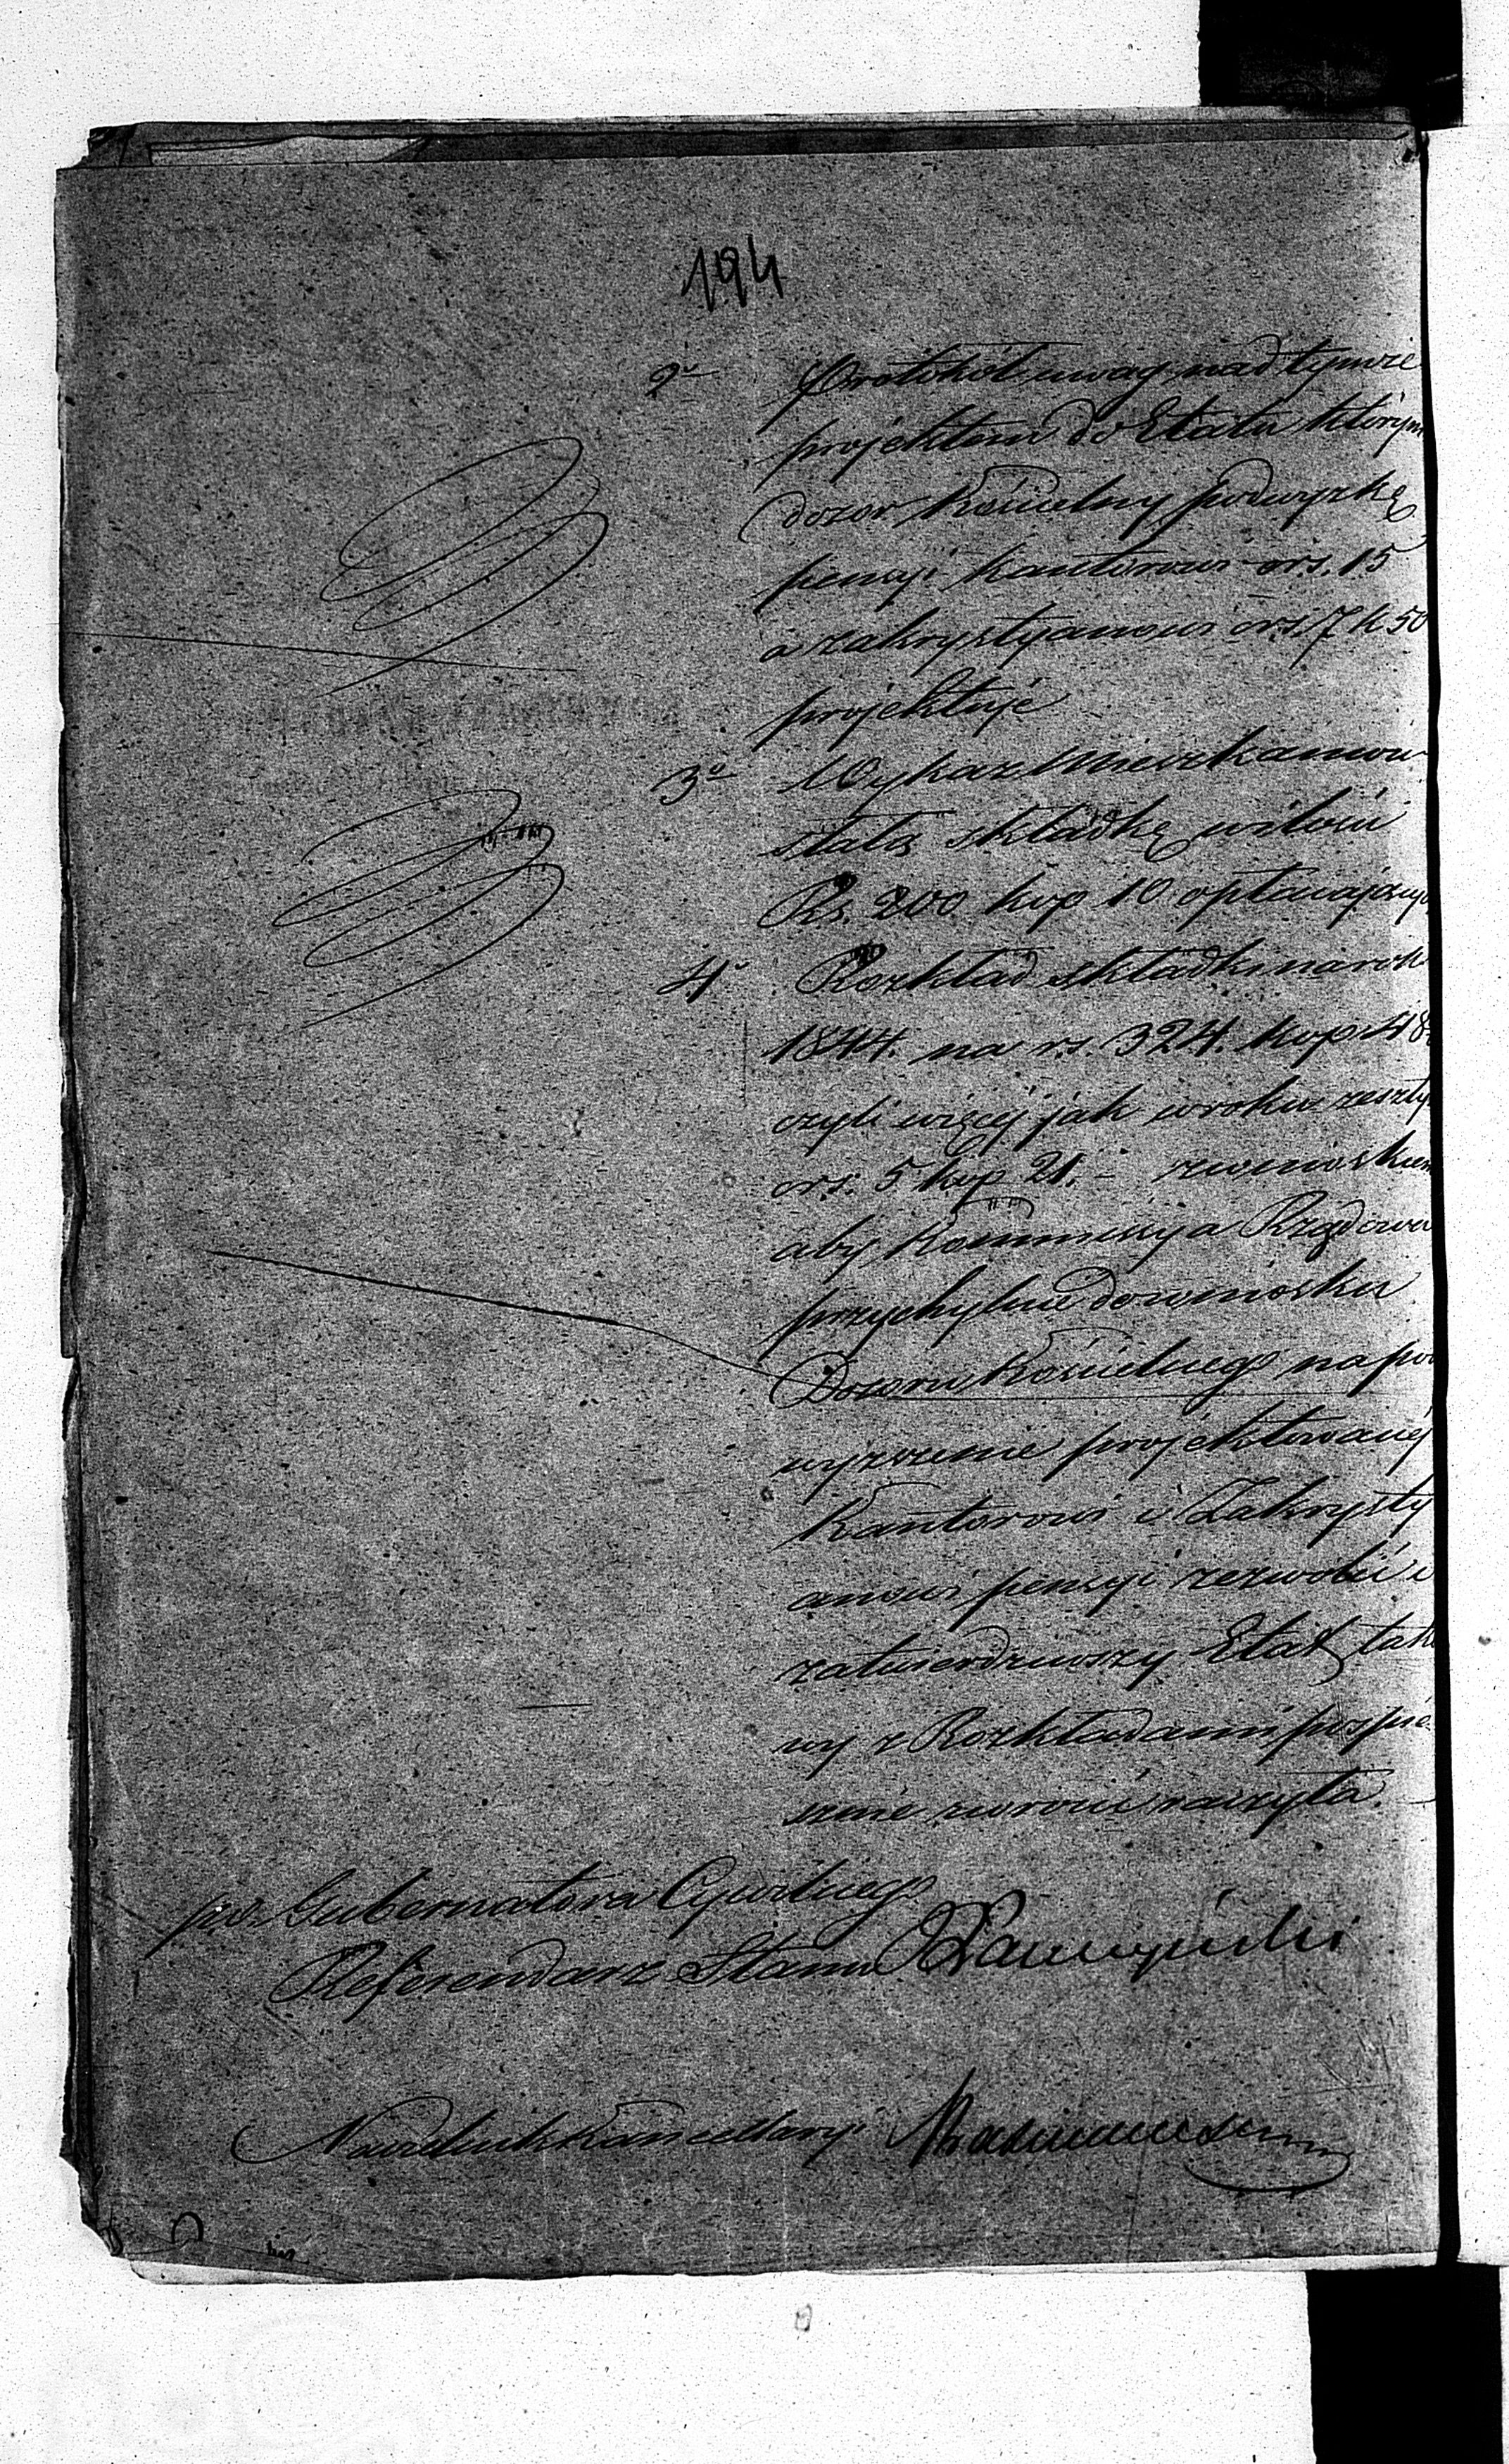 194
2o Protokół uwag nad tymże
projektem do Etatu którym
dozor Kościelny podwyżkę
pensyi kantorowi rs. 15
a zakrystyanowi rs. 7 k. 50
projektuje
3o Wykaz Mieszkańców
stałą składkę w ilości
Rs. 200 kop 10 opłacających
4o Rozkład składki na rok
1844. na rs. 324. kop. 48
czyli więcej jak w roku zeszłym
rs. 5 kop 21. – z wnioskiem
aby Kommissya Rządowa
przychylnie do wniosku
Dozoru Kościelnego na pod
wyższenie projektowanej
Kantorowi i Zakrysty
anowi pensyi zezwolić i
zatwierdziwszy Etat tako
wy z Rozkładami pospie
sznie zwrócić raczyła.
po. Gubernatora Cywilnego
Referendarz Stanu
Naczelnik Kancellaryi